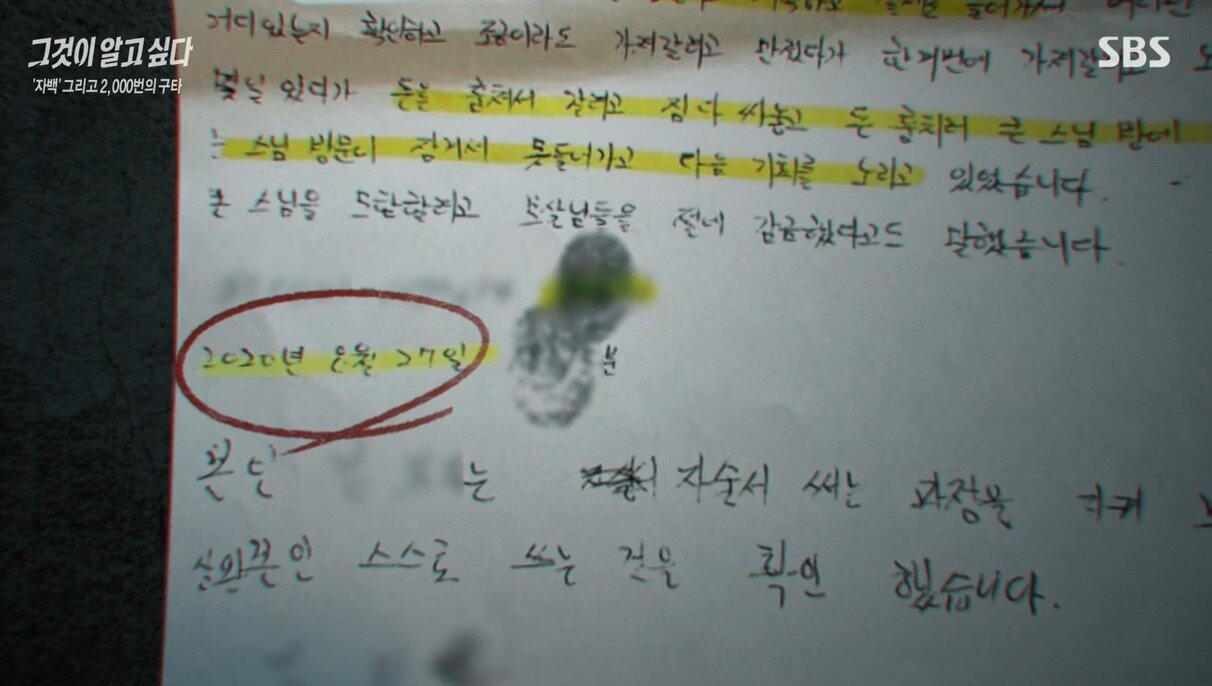 그것이 알고 싶다
'자백' 그리고 2,000번의 구타
SBS
거디있는지 확인하고 조금이라도 가져갈려고 만졌다가 한꺼번에 가져갈려고
몇일 있다가 돈을 훔쳐서 갈려고 짐 다 싸놓고 돈 훔치러 큰 스님 방에
는 스님 방문이 잠겨서 못들어가고 다음 기회를 노리고 있었습니다.
큰 스님을 도발할려고 보살님들을 절에 감금했다고도 말했습니다.
2020년 8월 27일 분
본인 는 자술서 쓰는 과정을 지켜
본인 스스로 쓰는 것을 확인 했습니다.